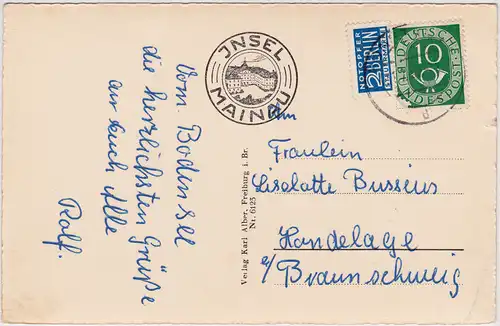 Vom Bodensee
die herzlichsten Grüße
an Euch Alle
Rolf.
INSEL
MAINAU
NOTOPFER
2 BERLIN
STEUERMARKE
DEUTSCHE
10
BUNDESPOST
d
An
Fräulein
Liselotte Bussius
Handelage
b/Braunschweig
Verlag Karl Alber, Freiburg i. Br.
Nr. 6125